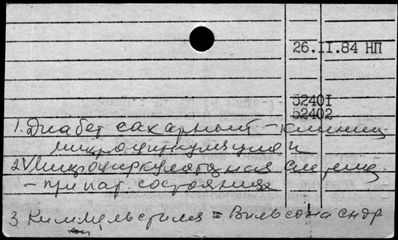 26.II.84 НП
52401
52402
1. Диабет сахарный - клиниц
микроциркуляции
2. Микроциркуляторная система
- при пат. состояниях
3. Киммельстиля = Вильсона синдр